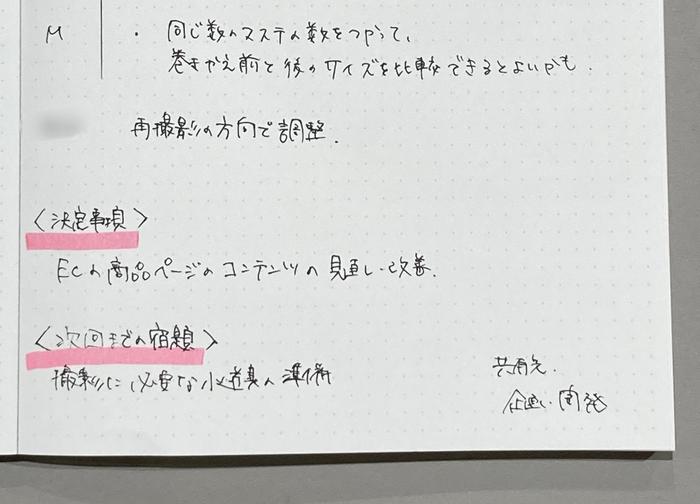 M ・ 同じ数のマステの数をつかって、
巻きかえ前と後のサイズを比較できるとよいかも.
再撮影の方向で調整.
〈決定事項〉
ECの商品ページのコンテンツの見直し・改善.
〈次回までの宿題〉
撮影に必要な小道具の準備
共有先.
企画・開発